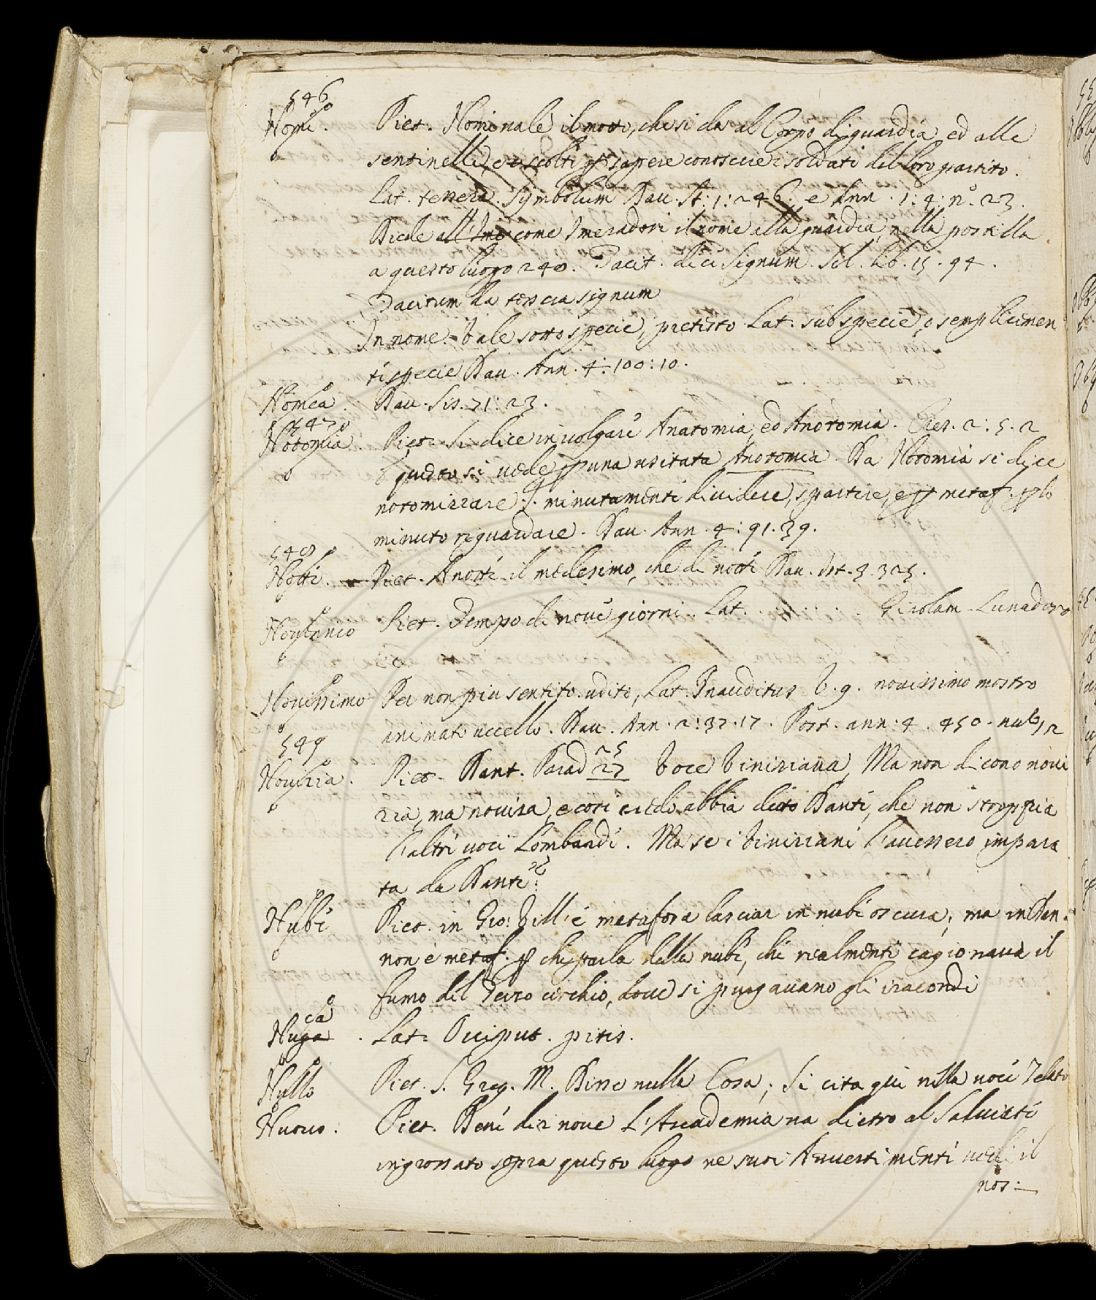 546
Nome. Piet. Nominale il moto, che si da al Corpo di guardia, ed alle
sentinelle, e ascolti p sapere conoscere i soldati del loro partito.
Lat. tessera. Symbolum Dau. St: 1: 246. e Ann. 1: 4: nº 23.
come Imperadori il nome alla guardia, nella postilla
a questo luogo 240. Tacit. dice signum. lib. 15. 94
Tacitum signum
In nome. Vale sotto specie, pretesto Lat. sub specie, o semplicimen
te specie Dau. Ann. 4: 100: 10.
Nomea. Dau. 71: 23.
547
Notomia. Piet. Si dice in volgare Anatomia, ed Anotomia. 2: 5. 2
questo si vede p una usitata Anotomia. Da Notomia si dice
notomizzare p. minutamente dividere, spartire, e p metaf. p lo
minuto riguardare. Dau. Ann. 4: 91. 39.
548
Notte. Piet. A notte il medesimo, che di notte Dau. 3. 325.
Novennio Piet. Tempo di nove giorni. Lat. Girolam. Lunadoro
Novissimo Per non piu sentito. udito, Lat. Inauditus V. g. novissimo mostro
uccello. Dau. Ann. 2: 37. 17. Post. ann. 4. 450.
549
Piet. Dant. Parad 25 27 Voce Viniziana, Ma non dicono novi
zia, ma novizza, e cosi abbia detto Dante, che non stroppia
l'altre voci Lombarde. Ma se i Viniziani l'avessero impara
ta da Dante?
Nube Piet. in Gio: Vill: è metafora lasciar in nube oscura; ma in Dan.
non è metaf. p che parla della nube, che realmente cagionava il
fumo del Terzo cerchio, dove si purgavano gli iracondi
Nuga ca. Lat. Occiput. pitis.
Nullo Piet. S. Greg. M. Disse nulla Cosa; Si cita qui nella voce Zelato
Nuovo. Piet. Bene di 2 nove L'Academia va dietro al Salviati
ingrossato sopra questo luogo ne suoi Avvertimenti vedi il
nos: